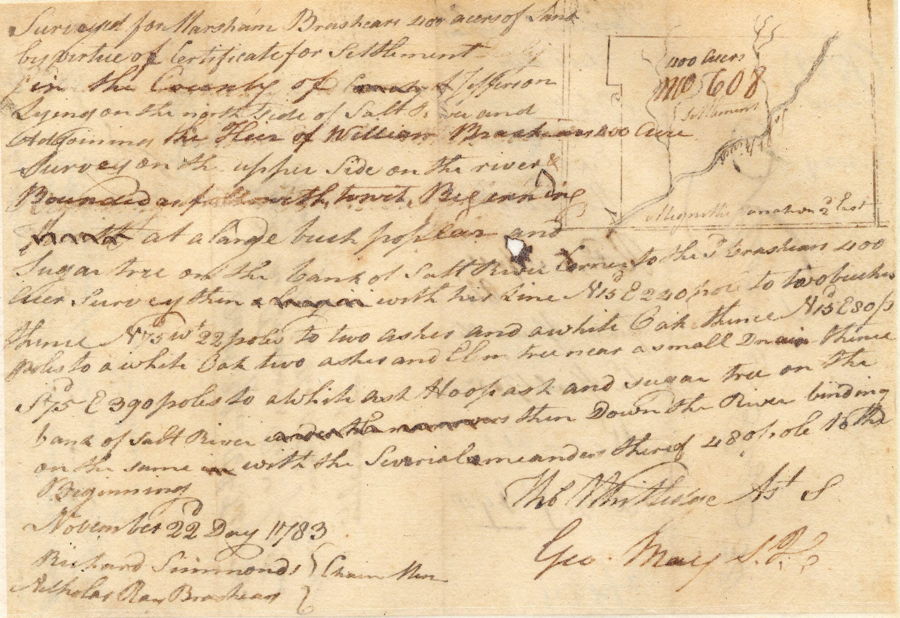 Surveyed for Marsham Brashears 400 acers of Land
by virtue of Certificate for Settlment
in the County of Jefferson
Lying on the north side of Salt River and
Adjoining the Heer of William Brashears 400 Acre
Survey on the upper Side on the river &
Bounded as followeth towit, Beginning
at a large buch poplar and
Sugar tree on the bank of Salt River Corner to the sd Brashears 400
Acer Survey then with his Line N 15d E 240 pole to two buches
thence N 75d Wt 22 poles to two ashes and a white Oak thence N 15d E 80 p
poles to a white Oak two ashes and Elm tree near a small Drain thence
Sd 75 E 390 poles to a white ash Hoopash and sugar tree on the
bank of Salt River then Down the River binding
on the same with the Severial meanders thereof 480 pole to the
Beginning
November 22d Day 1783
Richard Simmonds
Nicholas Ray Brashears
Chain Men
Ast S
Geo. May
400 Acers
No 608
Settlement
Salt River
East